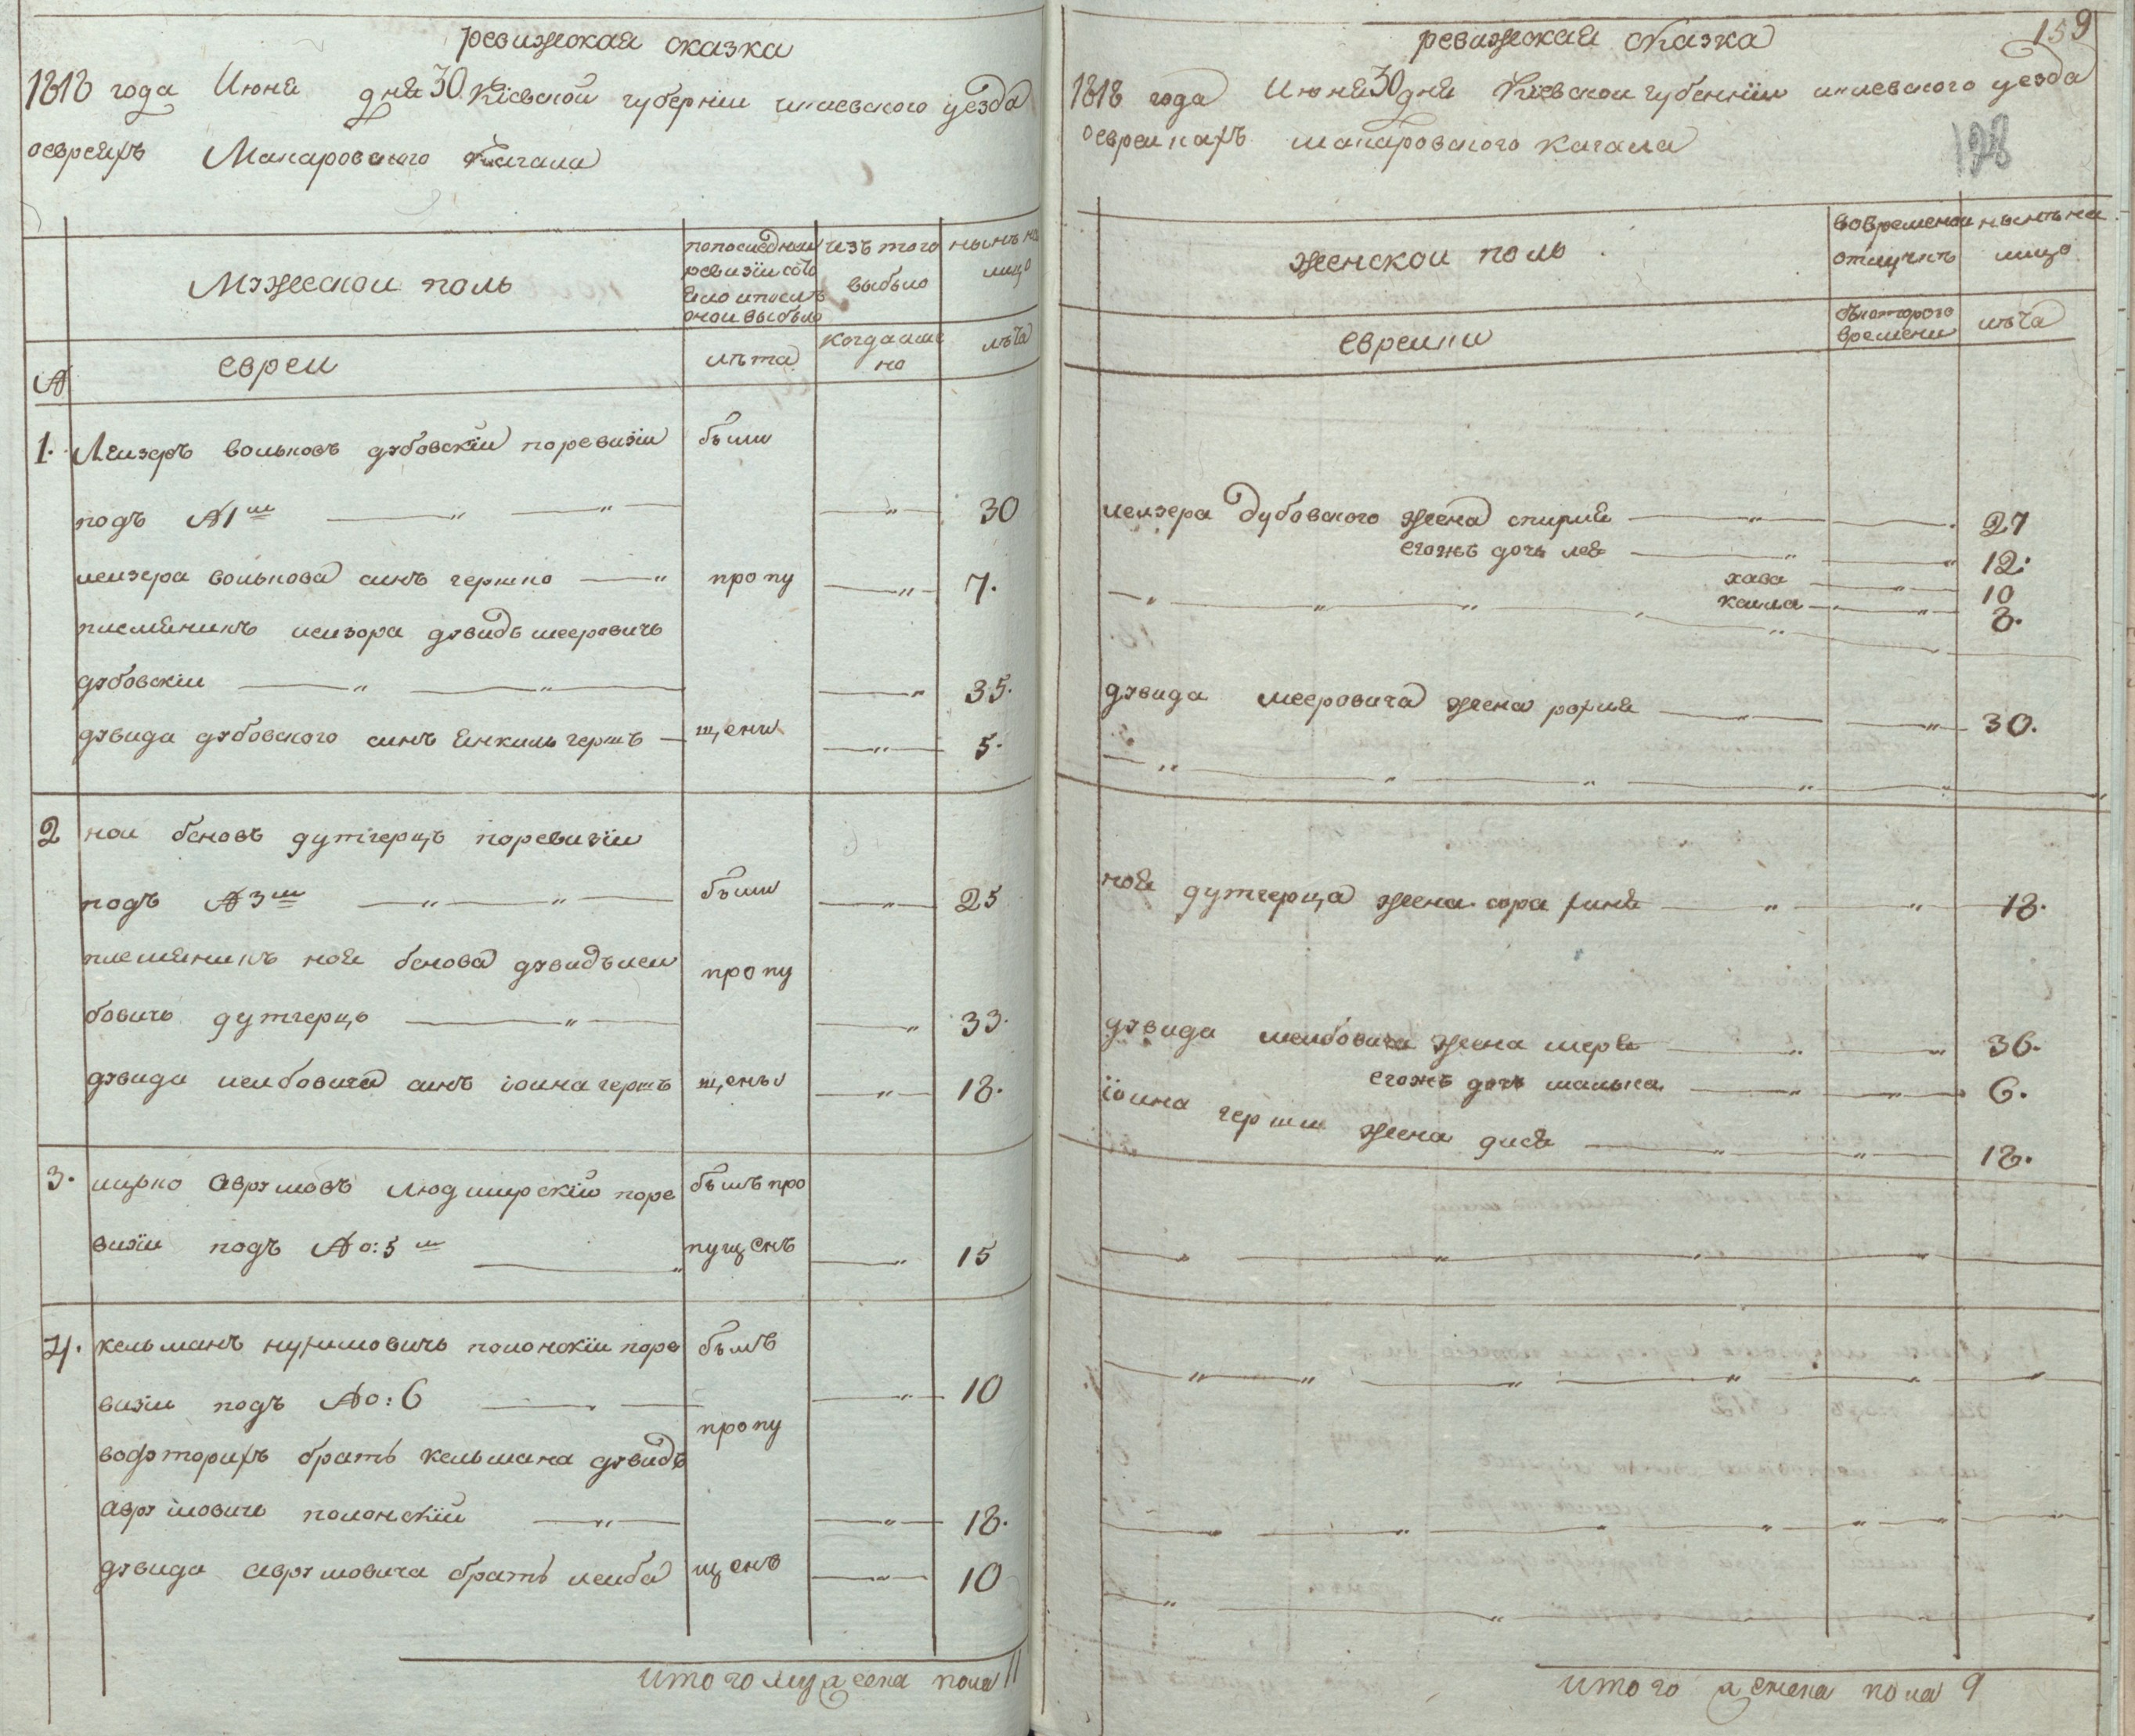 ревижская сказка
1818 года Июня дня 30 Кіевской губерніи киевского уезда
оевреяхъ Макаровского Кагала
Мужеской полъ
попоследней
ревизіи состо
яло ипослъ
онои выбыло
изъ того
выбыло
нынъ на
лицо
№
евреи
лъта
когдаиме
но
лъта
1. Леизеръ вольковъ дубовскіи поревизіи были
подъ №1м 30
леизера волькова синъ гершко пропу 7.
племяникъ леизора дувидъ мееровичъ
дубовскіи 35.
дувида дубовского синъ янкиль гершъ щени 5.
2 нои беновъ дутгерцъ поревизіи
подъ №3м были 25
племяникъ ноя бенова дувидълеи пропу
бовичъ дутгерцъ 33.
дувида леибовича синъ іоина гершъ щены 18.
3. ицько аврумовъ людмирскій поре былъ про
визіи подъ №о:5м пущенъ 15
4. кельманъ нухимовичъ полонскіи поре былъ
визіи подъ №о:6 10
вофторихъ братъ кельмана дувидъ пропу
аврумовичъ полонскій 18.
дувида аврумовича братъ леиба щенъ 10
итого мужеска пола 11
159
ревижская сказка
1818 года Июня 30 дня Кіевскои губернїи киевского уезда
оевреикахъ макаровского кагала
128
женскои полъ
вовременои
отлучкъ
нынъна
лицо
евреики
съкоторого
времени
лъта
леизера дубовского жена спирия 27
егожъ дочь лея 12.
хава 10
каила 8.
дувида мееровича жена рохля 30.
ноя дутгерца жена сора хиня 18.
дувида леибовича жена шеря 36.
егожъ дочь малька 6.
іоина герши жена дися 18.
итого женска пола 9